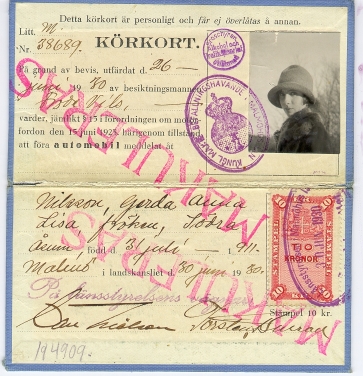 Detta körkort är personligt och får ej överlåtas å annan.
Litt. M.
Nr. 38689.
KÖRKORT.
På grund av bevis, utfärdat d. 26
juni 1930 av besiktningsmannen
varder, jämlikt § 15 i förordningen om motor-
fordon den 15 juni 1923, härigenom tillstånd
att föra automobil meddelat åt
MAKULERAS
MAKULERAS
Nilsson, Gerda Anna
Lisa, fröken, Södra
född d. 3 juli 1911.
Malmö i landskansliet d. 30 juni 1930.
På länsstyrelsens vägnar
STÄMPEL
10
KRONOR
Stämpel 10 kr.
194909.